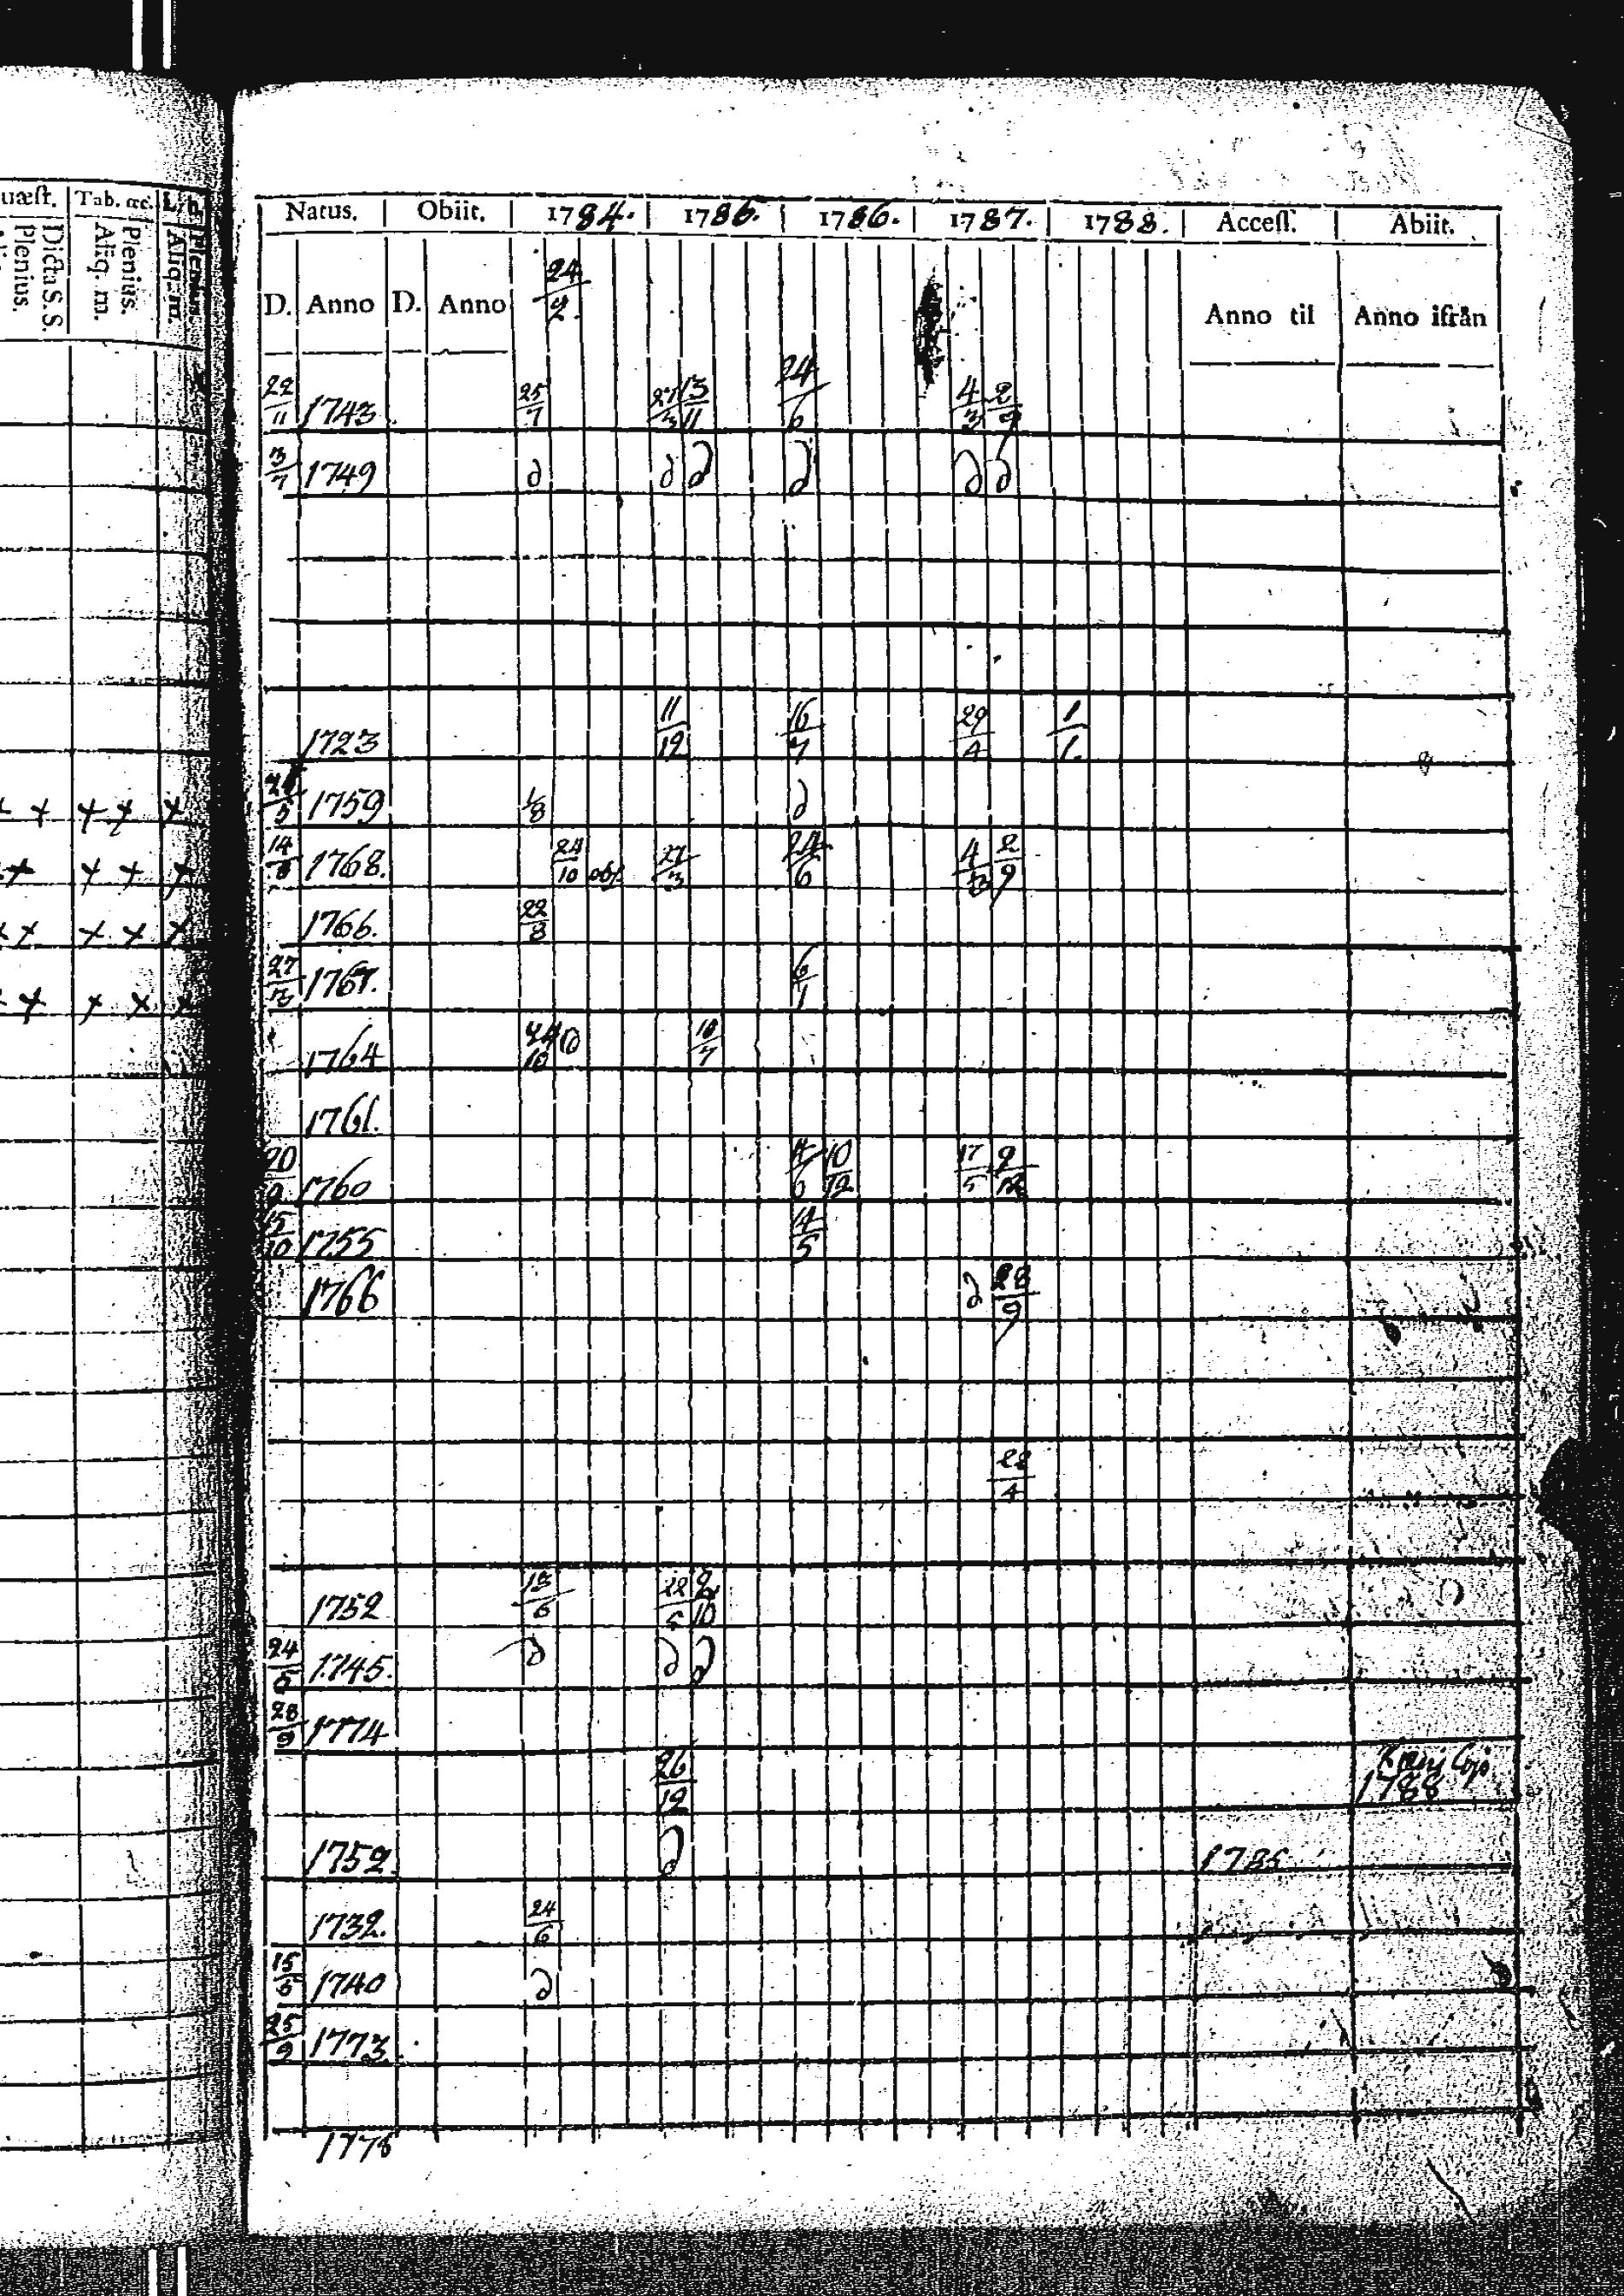 uæſt. Tab. &c.
Dicta S. S.
Plenius.
Plenius.
Aliq. m.
Plenius.
Aliq. m.
Natus. Obiit. 1784. 1786. 1786. 1787. 1788. Acceſſ. Abiit.
D. Anno D. Anno 24/2. Anno til Anno ifrån
22/11 1743 25/7 27/3 13/11 24/6 4/3 2/9
3/7 1749 d d d d d d
1723 11/12 16/7 29/4 1/1.
1759 1/8 d
1768. 24/10 abs. 27/3 24/6 4/3 2/9
1766. 22/8
1767. 6/1
1764 24/10 d 10/7
1761.
20/9 1760 4/6 10/12 17/5 9/12
15/10 1755 4/5
1766 d 28/9
28/4
1752 13/6 22/5 2/10
24/5 1745. d d d
28/9 1774
26/12 1788
1752. d 1785
1732. 24/6
15/5 1740 d
25/9 1773.
1776